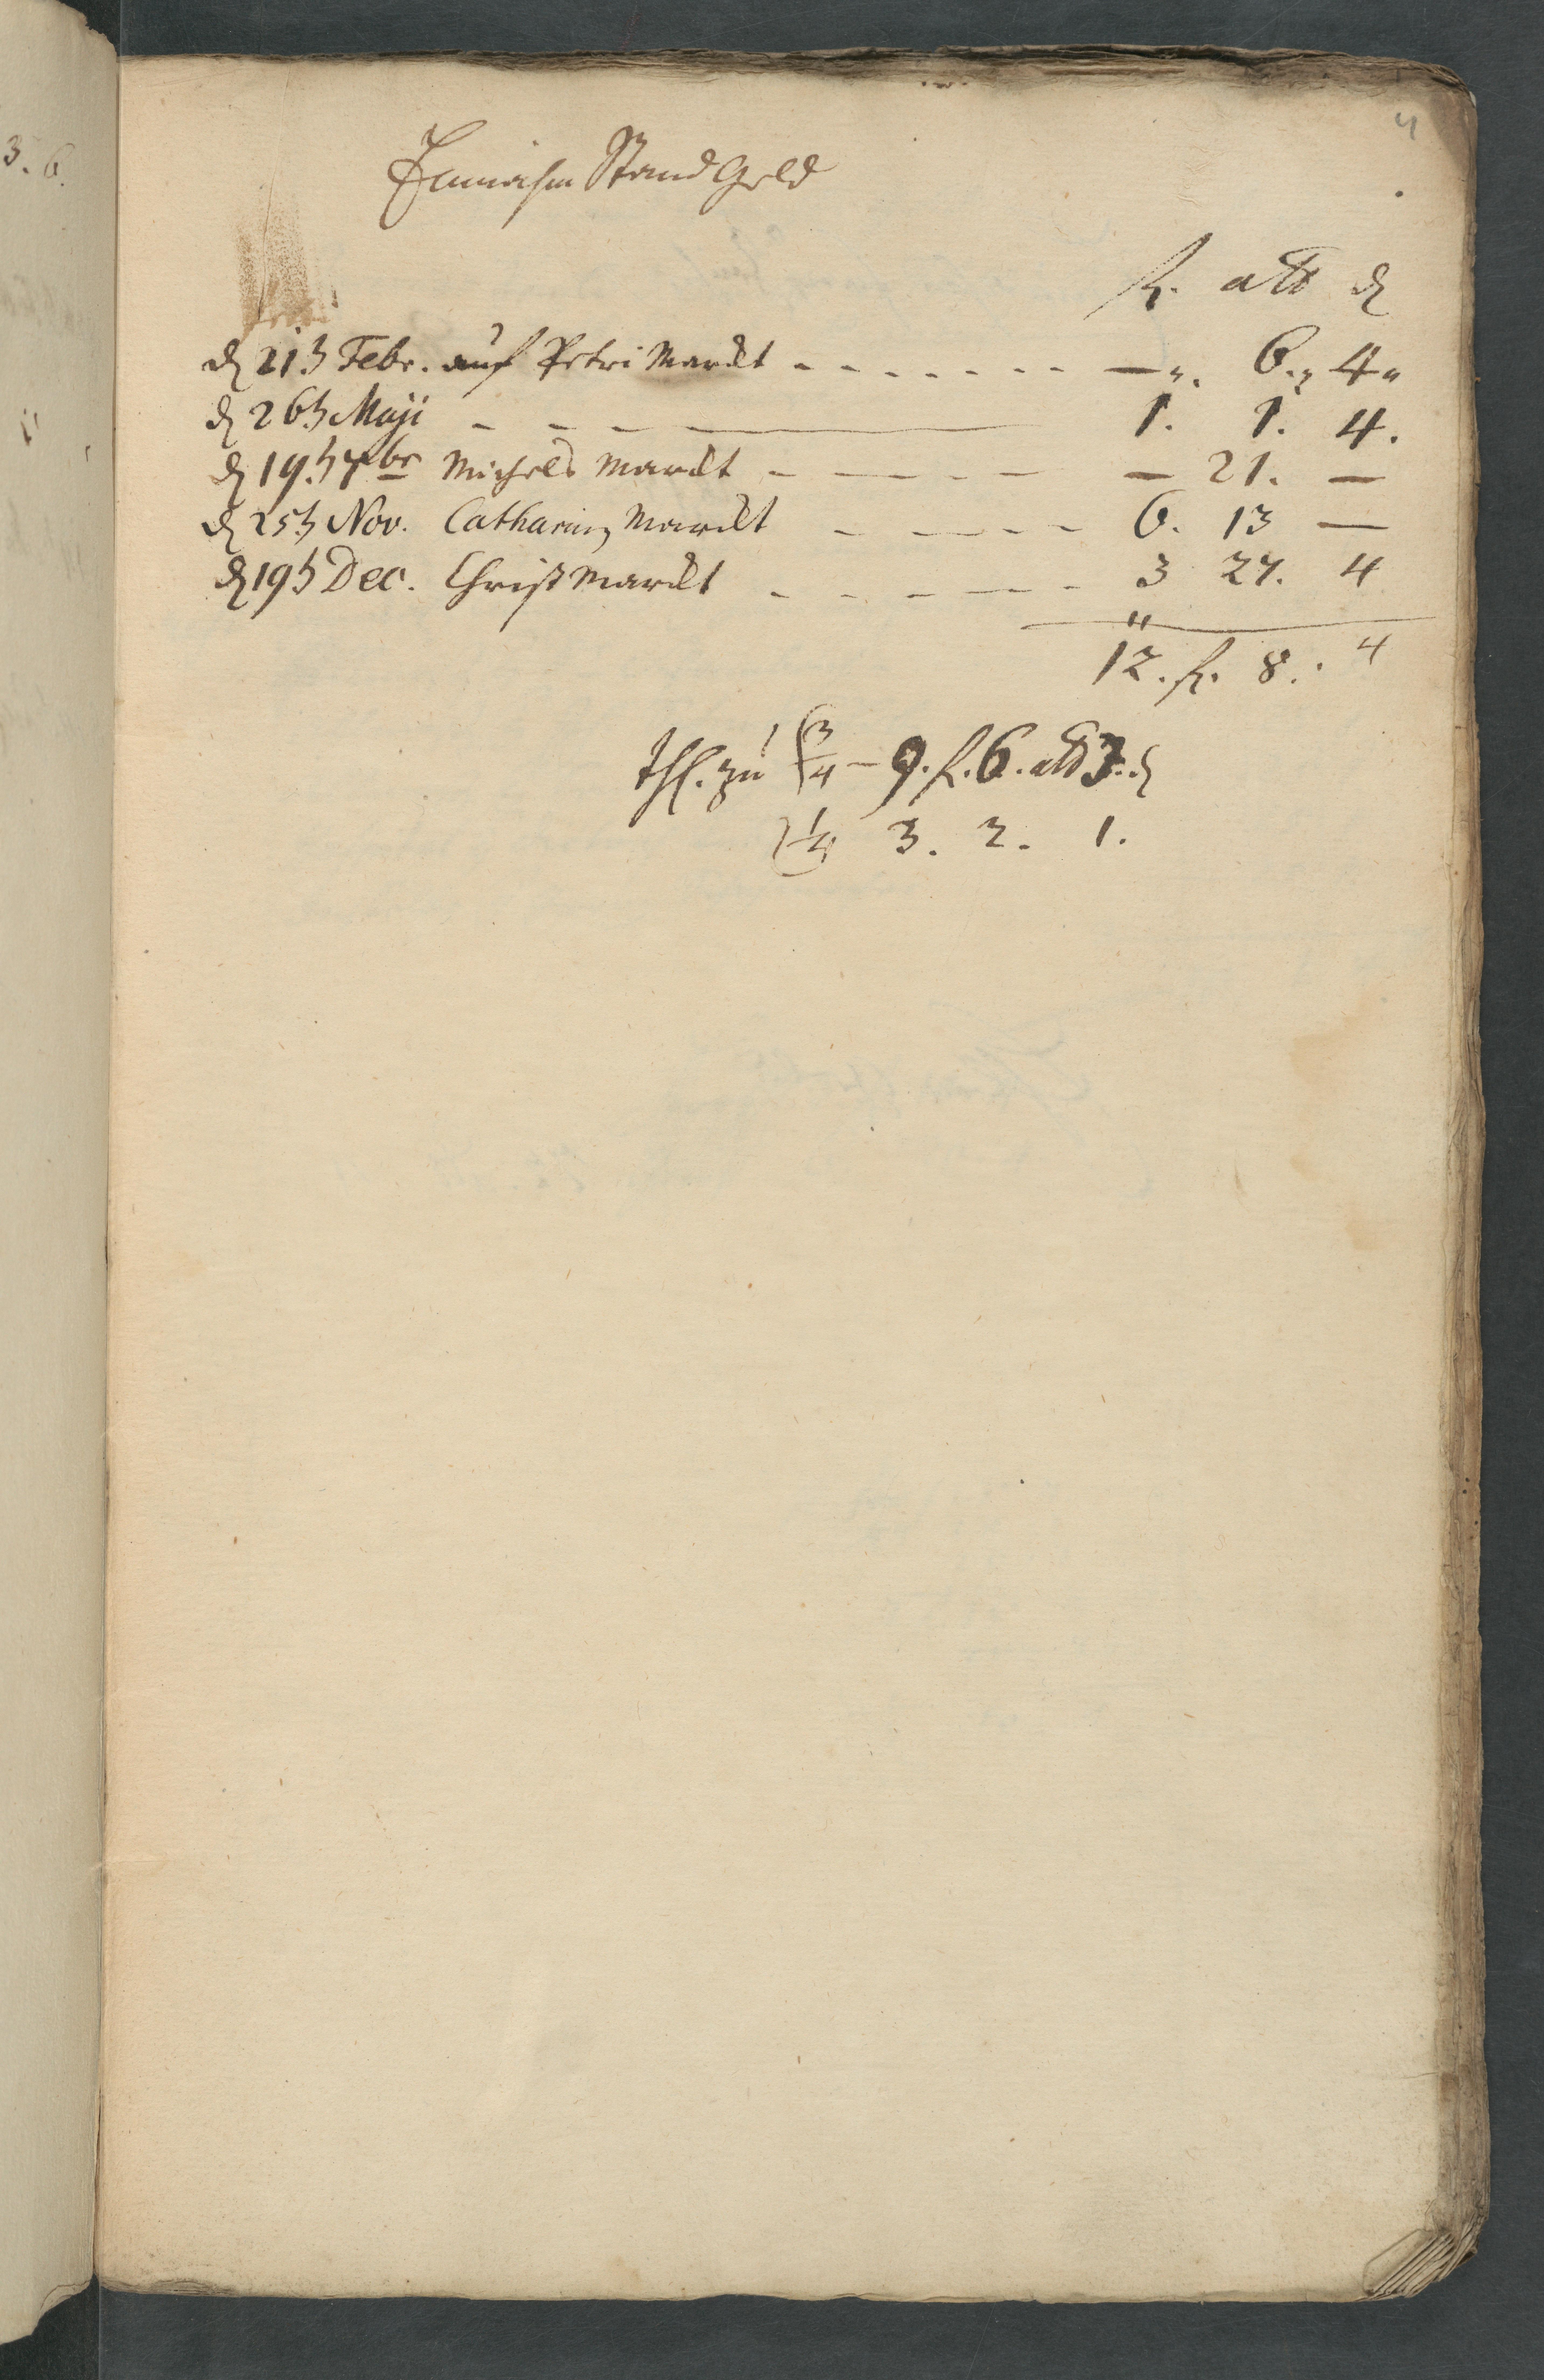 4
Einnahm Stand Geld
fl. alb d
d 21t. Febr. auf Petri Marckt - - - - - - - —„. 6.„ 4„
d 26t. Maji - - - — 1. 1. 4.
d 19t. 7br Michels Marckt - — - - - — 21. —
d 25t. Nov. Catharin Marckt - — - - - 6. 13 —
d 19t Dec. Christ Marckt - - - — - - 3 27. 4
12. fl. 8. . 4
thl. zu 3/4 — 9. fl. 6. alb 3. d
1/4 3. 2. 1.
3. 6.